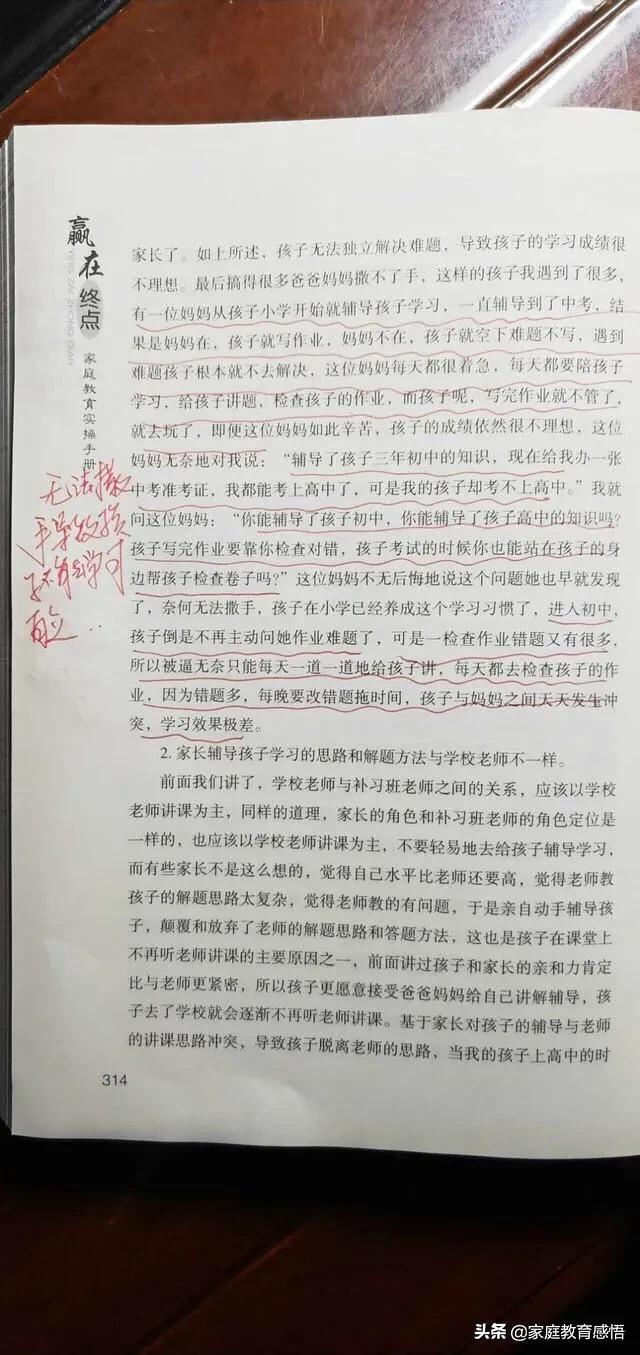 赢在终点
YING ZAI ZHONG DIAN
家庭教育实操手册
家长了。如上所述，孩子无法独立解决难题，导致孩子的学习成绩很
不理想。最后搞得很多爸爸妈妈撒不了手，这样的孩子我遇到了很多，
有一位妈妈从孩子小学开始就辅导孩子学习，一直辅导到了中考，结
果是妈妈在，孩子就写作业，妈妈不在，孩子就空下难题不写，遇到
难题孩子根本就不去解决，这位妈妈每天都很着急，每天都要陪孩子
学习，给孩子讲题，检查孩子的作业，而孩子呢，写完作业就不管了，
就去玩了，即便这位妈妈如此辛苦，孩子的成绩依然很不理想，这位
妈妈无奈地对我说：“辅导了孩子三年初中的知识，现在给我办一张
中考准考证，我都能考上高中了，可是我的孩子却考不上高中。”我就
问这位妈妈：“你能辅导了孩子初中，你能辅导了孩子高中的知识吗？
孩子写完作业要靠你检查对错，孩子考试的时候你也能站在孩子的身
边帮孩子检查卷子吗？”这位妈妈不无后悔地说这个问题她也早就发现
了，奈何无法撒手，孩子在小学已经养成这个学习习惯了，进入初中，
孩子倒是不再主动问她作业难题了，可是一检查作业错题又有很多，
所以被逼无奈只能每天一道一道地给孩子讲，每天都去检查孩子的作
业，因为错题多，每晚要改错题拖时间，孩子与妈妈之间天天发生冲
突，学习效果极差。
无法撒
手导致孩
子不能学习
2. 家长辅导孩子学习的思路和解题方法与学校老师不一样。
前面我们讲了，学校老师与补习班老师之间的关系，应该以学校
老师讲课为主，同样的道理，家长的角色和补习班老师的角色定位是
一样的，也应该以学校老师讲课为主，不要轻易地去给孩子辅导学习，
而有些家长不是这么想的，觉得自己水平比老师还要高，觉得老师教
孩子的解题思路太复杂，觉得老师教的有问题，于是亲自动手辅导孩
子，颠覆和放弃了老师的解题思路和答题方法，这也是孩子在课堂上
不再听老师讲课的主要原因之一，前面讲过孩子和家长的亲和力肯定
比与老师更紧密，所以孩子更愿意接受爸爸妈妈给自己讲解辅导，孩
子去了学校就会逐渐不再听老师讲课。基于家长对孩子的辅导与老师
的讲课思路冲突，导致孩子脱离老师的思路，当我的孩子上高中的时
314
头条 @家庭教育感悟